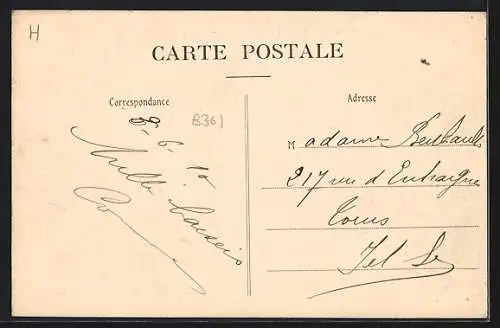 H
CARTE POSTALE
Correspondance
B361
8-6-10
Mille baisers
Adresse
Madame
217 rue d'Entraigues
Tours